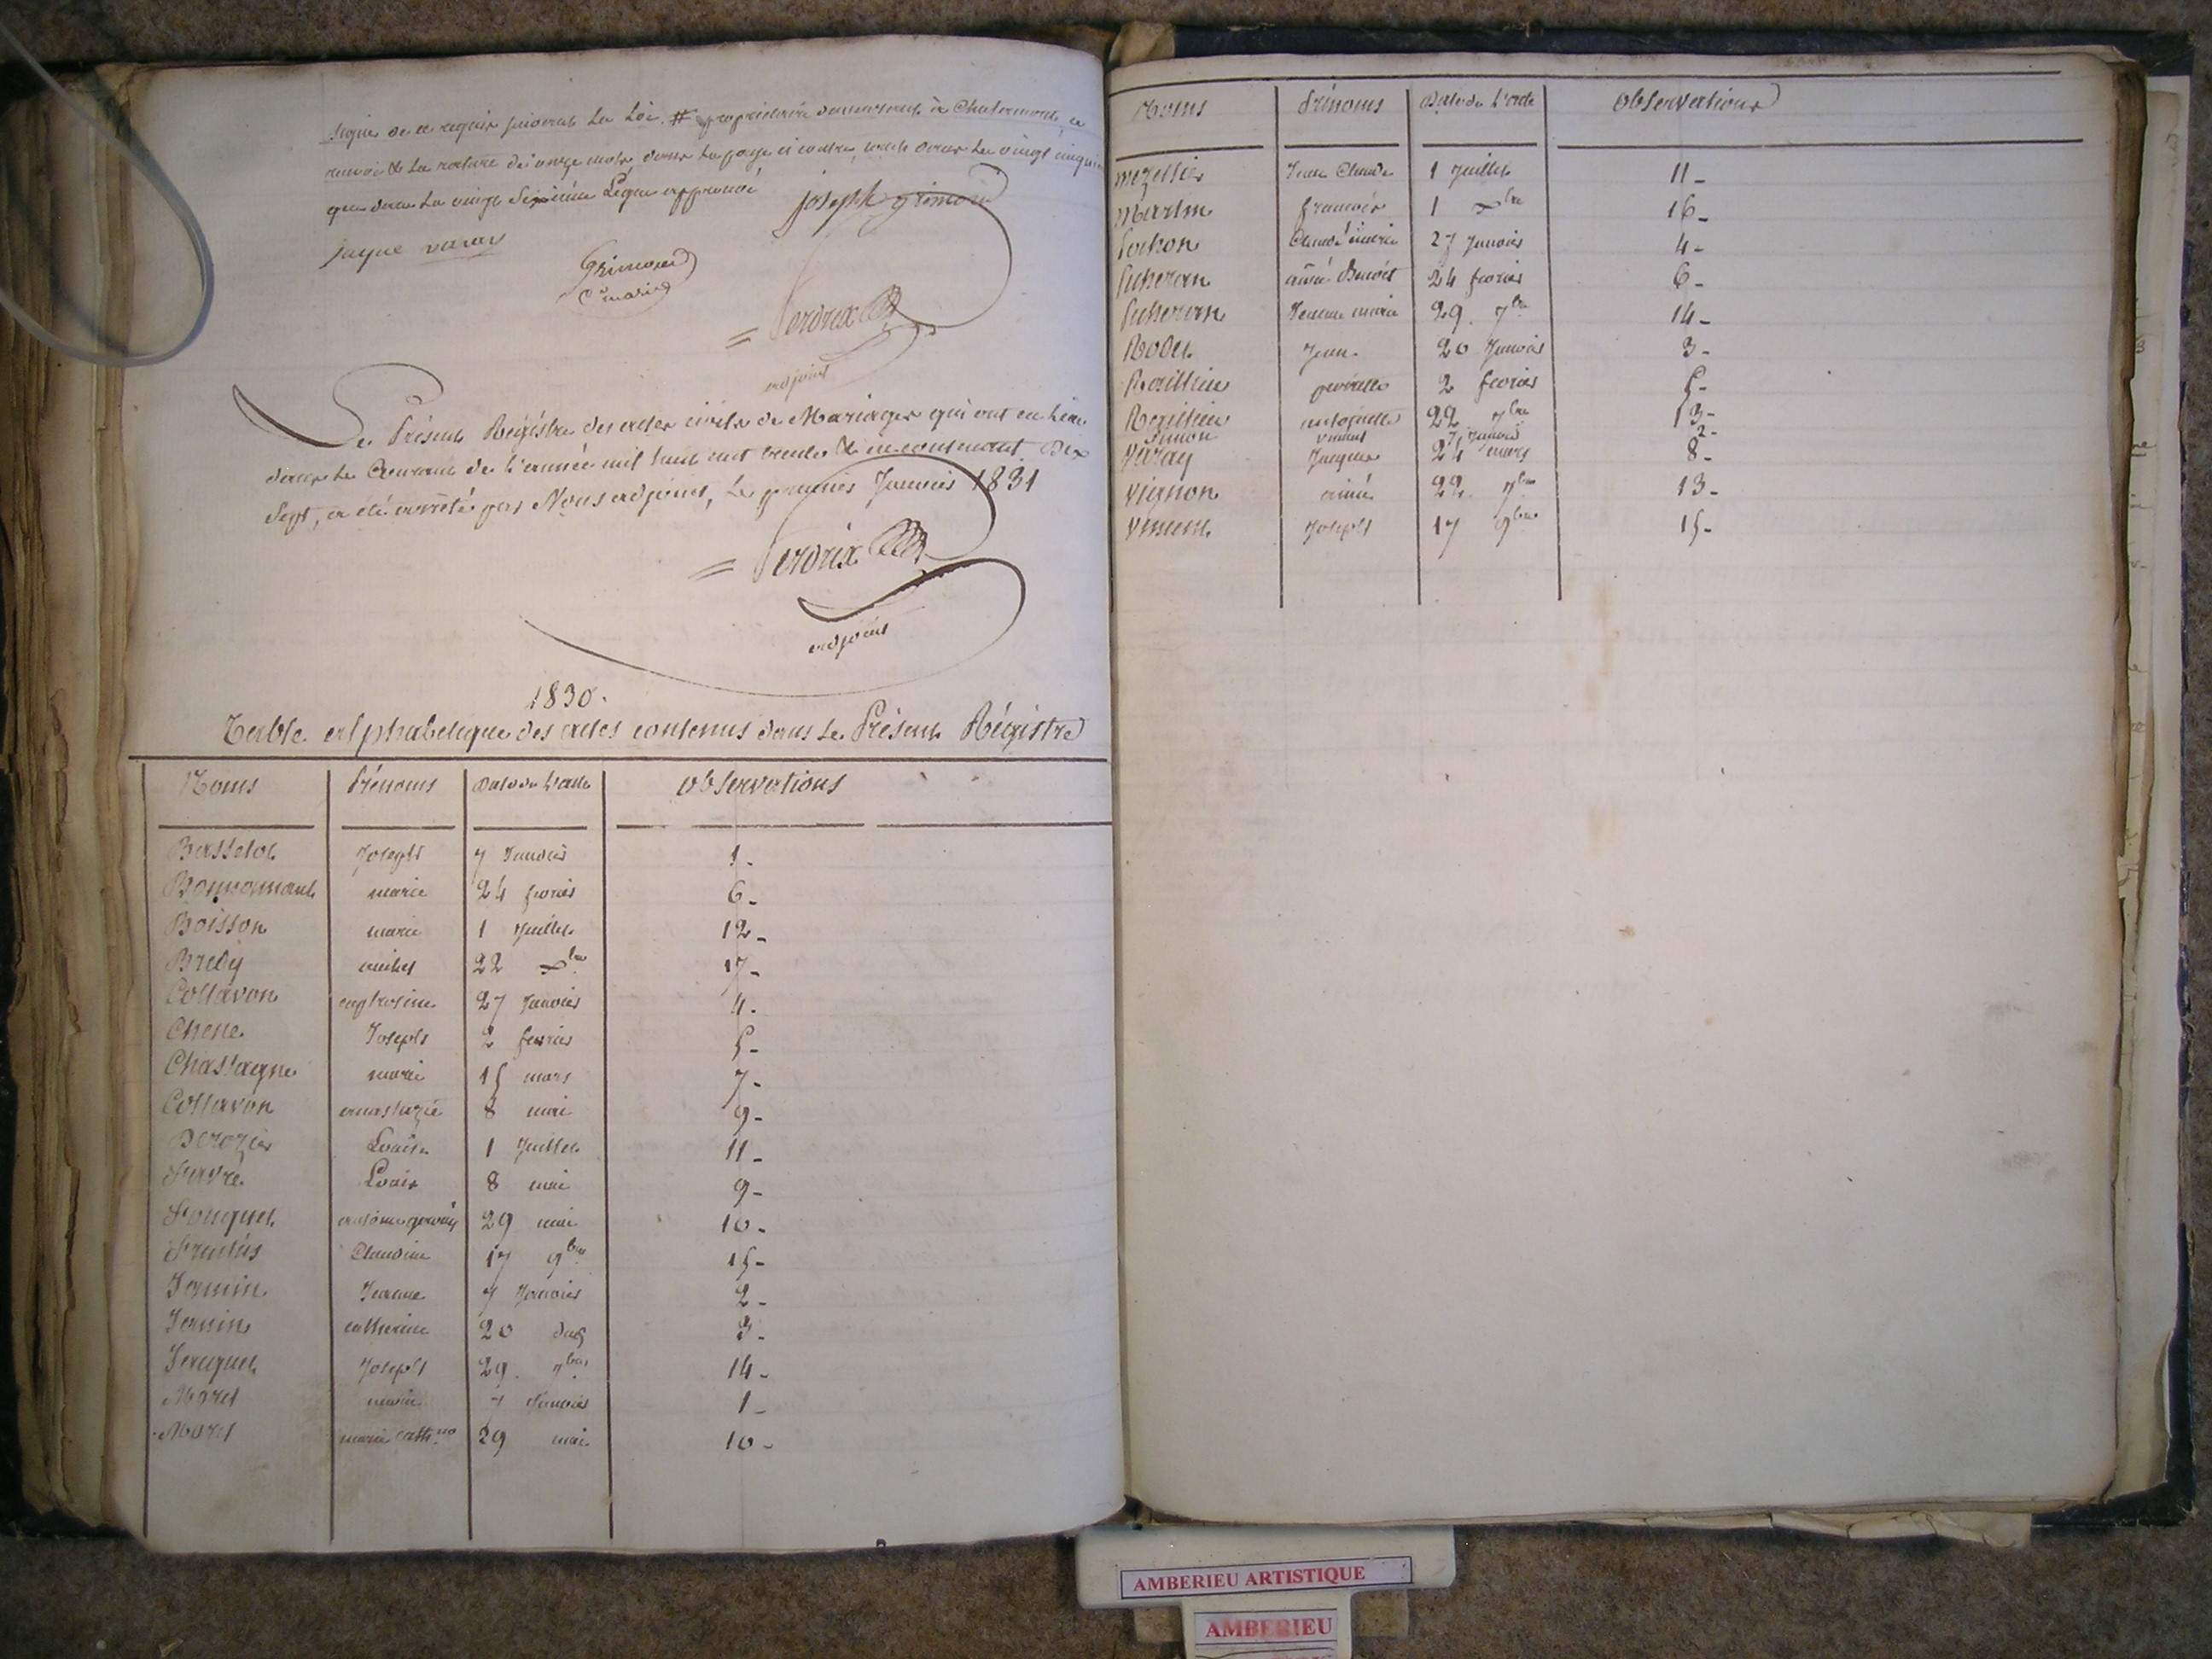 signé de ce requis suivant La Loi. # propriétaire demeurant à Chatermont, ce
renvoi & La rature de onze mots dans La page ci contre, tant dans La vingt cinquième
que dans La vingt Sixième Ligne approuvé
joseph grimond
jaque varay
Grimond
Cne marie
= Perdrix
adjoint
Le Présent Régistre des actes civils de Mariages qui ont eu Lieu
dans Le Courant de l'année mil huit cent trente & en contenant Dix
Sept, a été arrêté par Nous adjoint, Le premier Janvier 1831
= Perdrix
adjoint
1830.
Table alphabetique des actes contenus dans Le Présent Régistre
Noms Prénoms Date de L'acte Observations
Basselot Joseph 7 Janvier 1-
marie 24 fevrier 6-
Boisson marie 1 Juillet 12-
Bredy 22 Xbre 17-
Collavon euphrosine 27 Janvier 4-
Chene Joseph 2 fevrier 5-
Chassagne marie 15 mars 7-
Collavon anastazie 8 mai 9-
Derozier Louise 1 Juillet 11-
Favre Louis 8 mai 9-
Fouquet antoine gervais 29 mai 10-
Claudine 17 9bre 15-
Janin Jeanne 7 Janvier 2-
Janin catherine 20 dud 3-
Jacquet Joseph 29. 7bre 14-
Morel marie 7 Janvier 1-
Morel marie cathne 29 mai 10-
Noms Prénoms Date de L'acte Observations
Mezellier Jean Claude 1 Juillet 11-
Martin francois 1 Xbre 16-
Pochon Claude marie 27 Janvier 4-
Picheran aimé Benoit 24 fevrier 6-
Picheran Jeanne marie 29. 7bre 14-
Rodet Jean. 20 Janvier 3-
pierrette 2 fevrier 5-
antoinette 22 7bre 13-
Simon vincent 7 Janvier 2-
Varay Jacques 24 mars 8-
Vignon aimé 22. 7bre 13-
Vincent Joseph 17 9bre 15-
AMBERIEU ARTISTIQUE
AMBERIEU